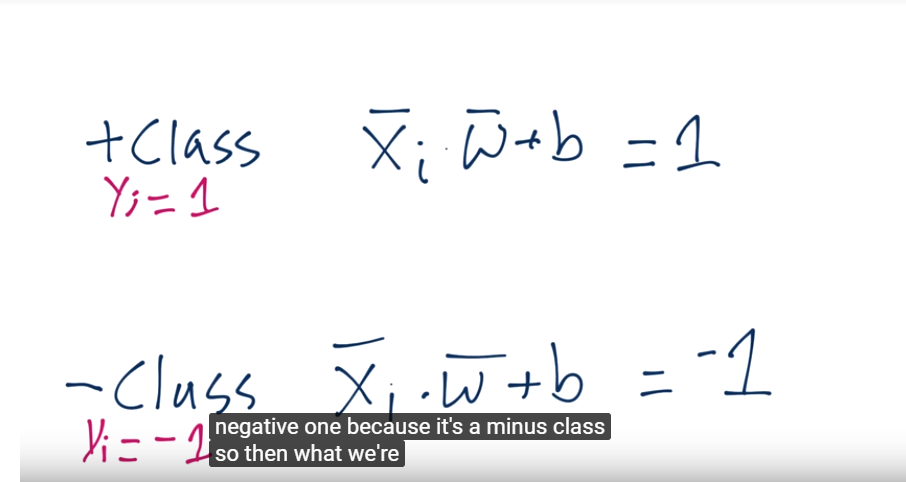 +Class x̄ᵢ · w̄ + b = 1
Yᵢ = 1
-Class x̄ᵢ · w̄ + b = -1
Yᵢ = -1
negative one because it's a minus class
so then what we're